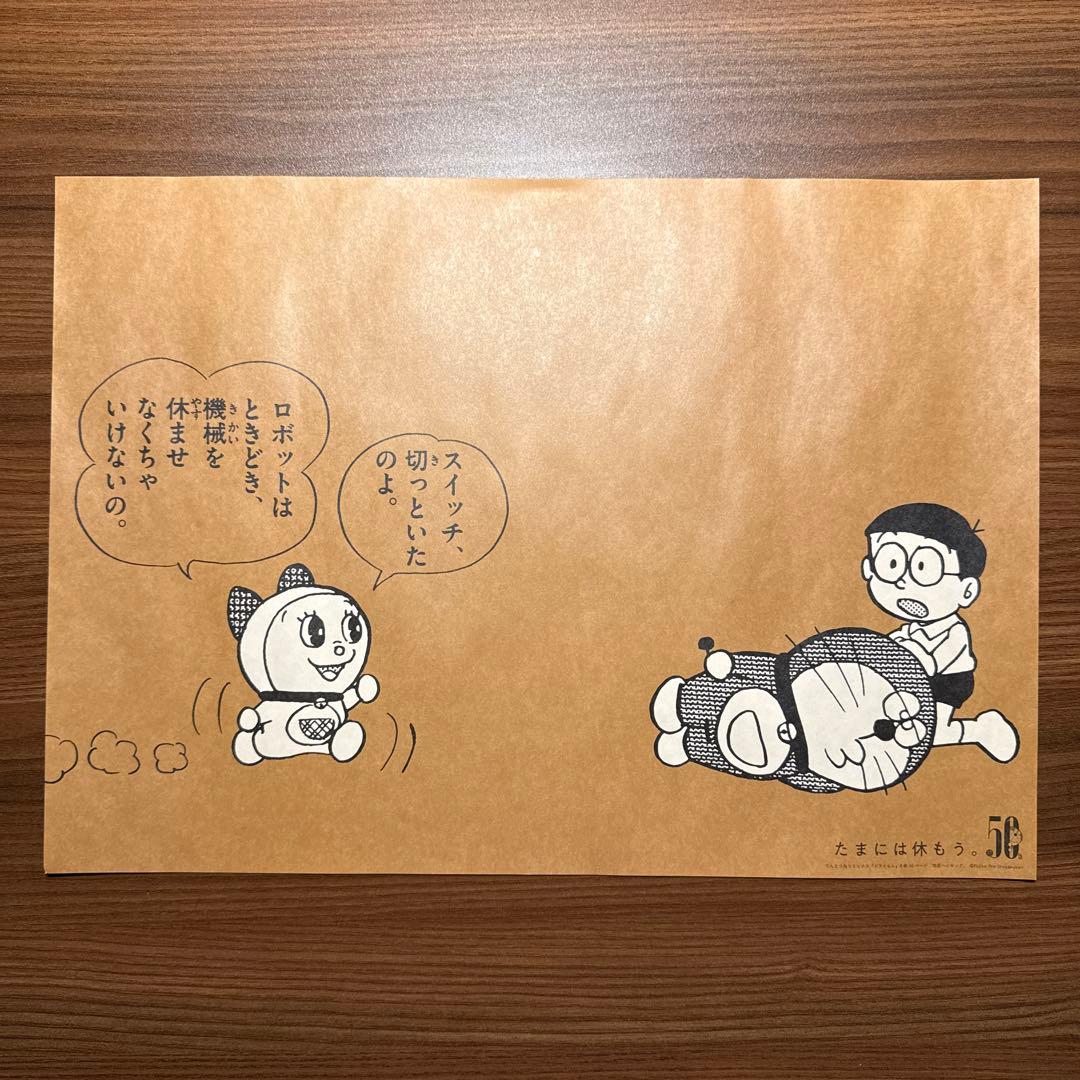 スイッチ、
切っといた
のよ。
ロボットは
ときどき、
機械を
休ませ
なくちゃ
いけないの。
たまには休もう。
50